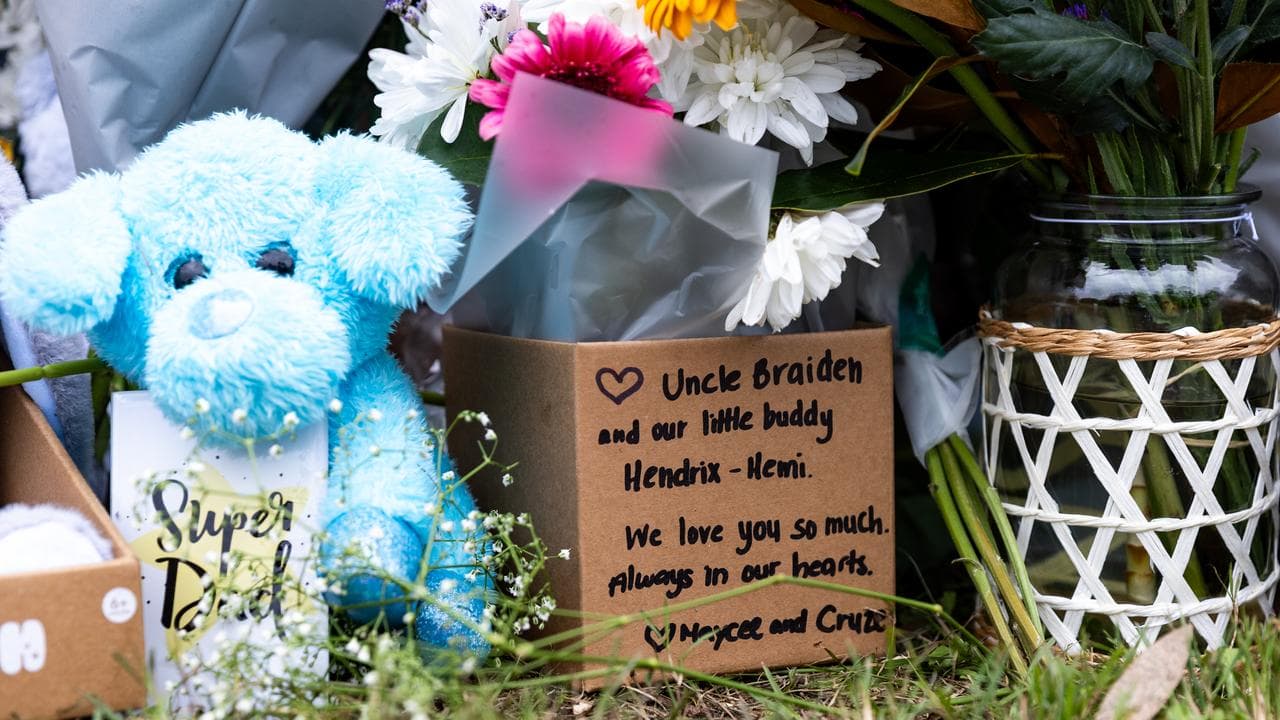 Super
Dad
♡ Uncle Braiden
and our little buddy
Hendrix - Hemi.
We love you so much.
Always in our hearts.
♡ Maycee and Cruze
6+